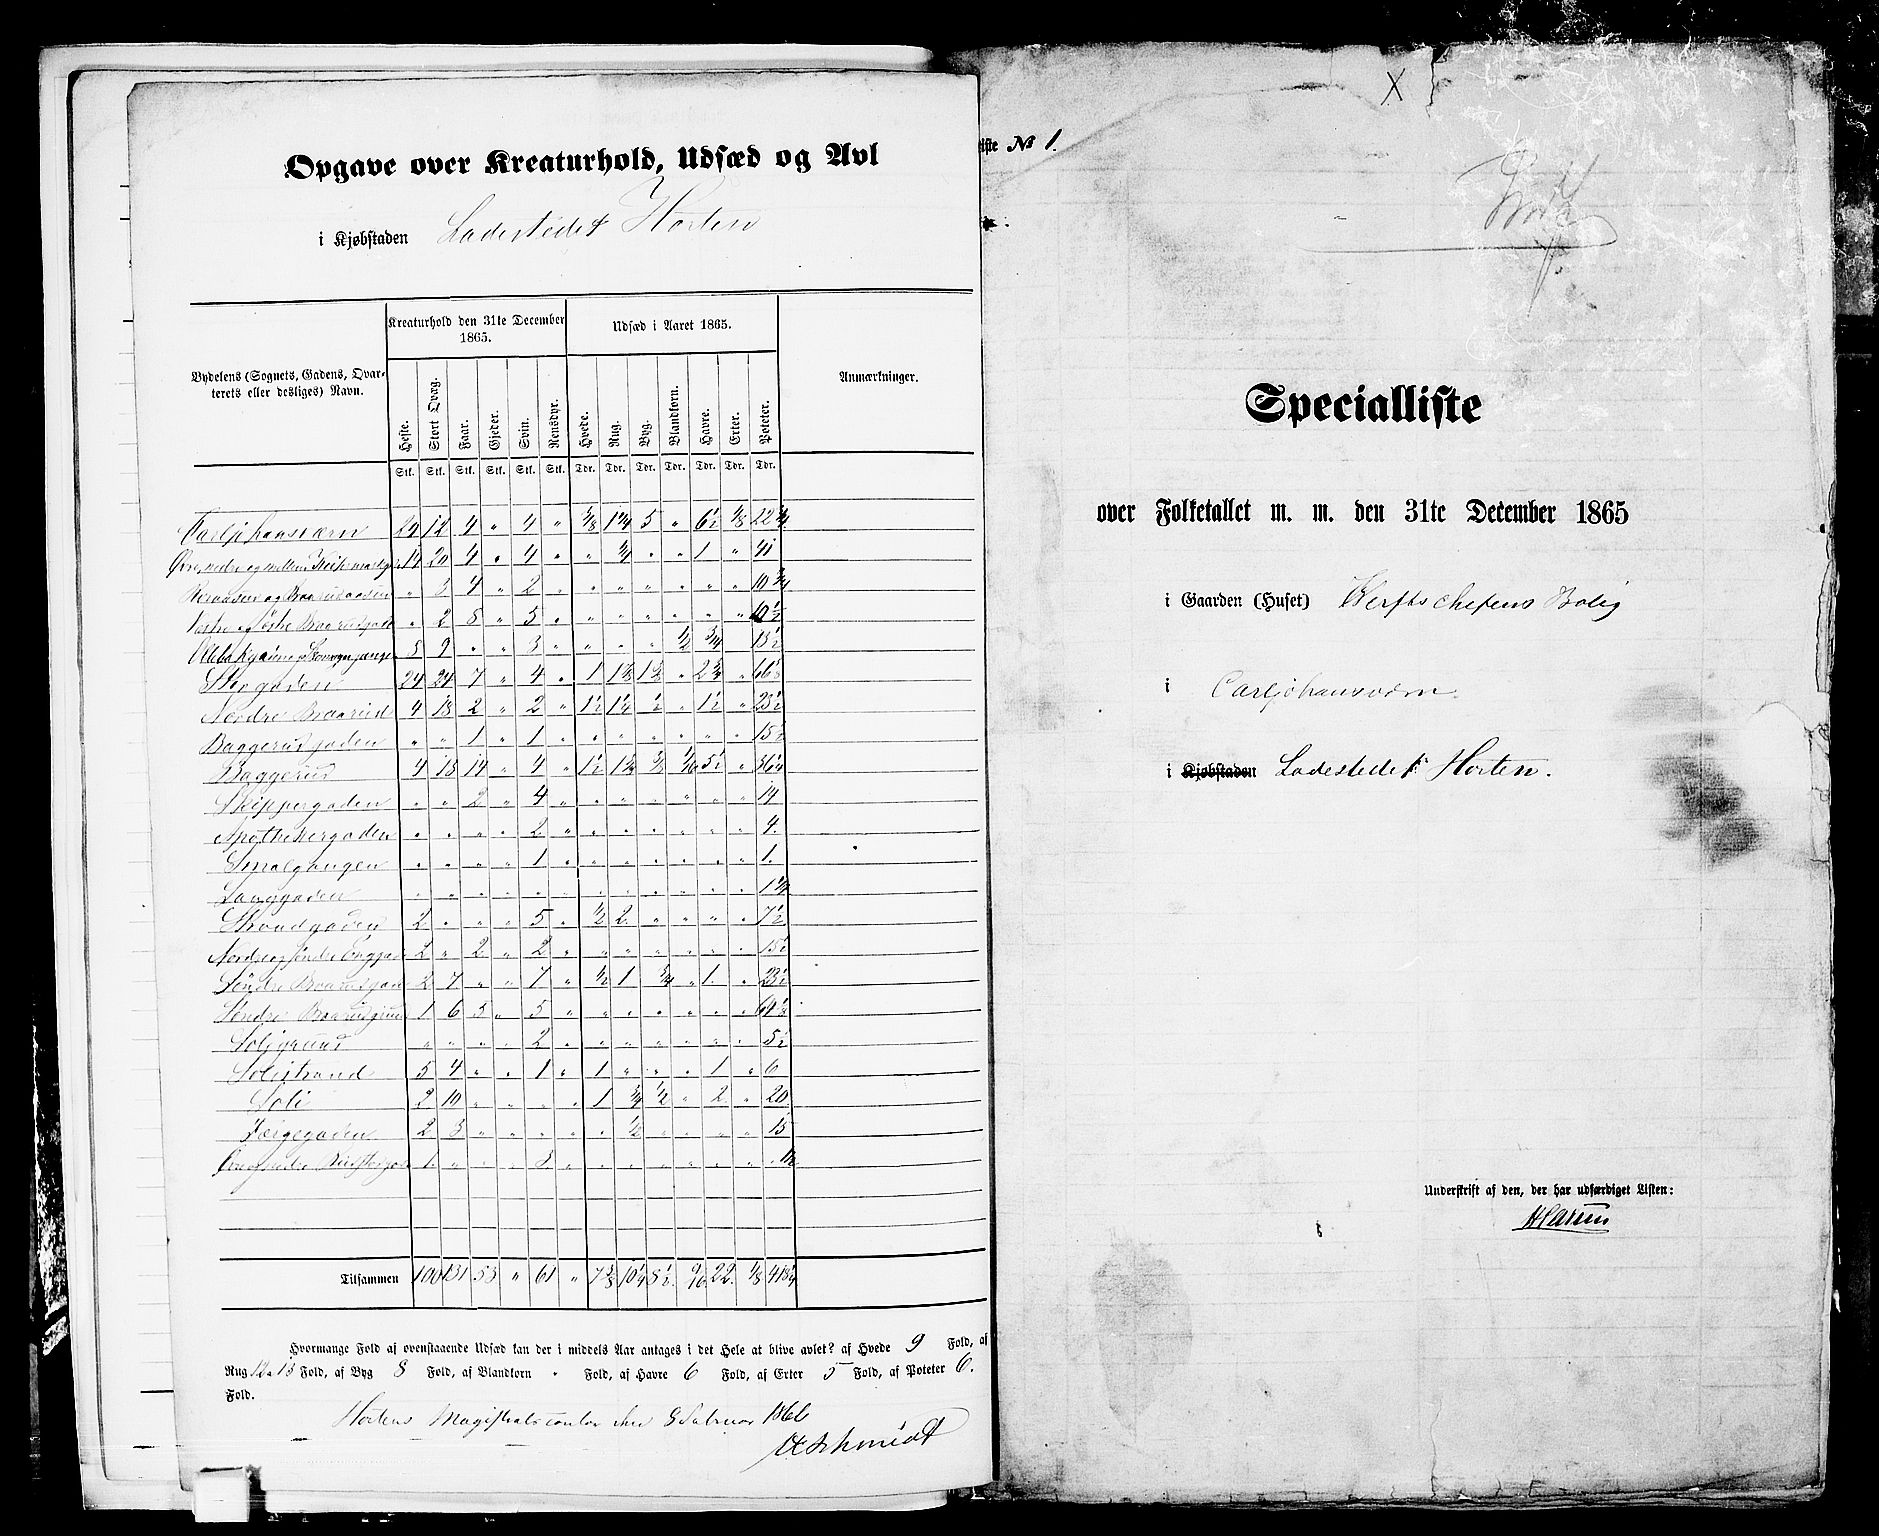 Opgave over Kreaturhold, Udsæd og Avl
i Kjøbstaden Ladestedet Horten
Bydelens (Sognets, Gadens, Qvarterets eller desliges) Navn.
Kreaturhold den 31te December 1865.
Udsæd i Aaret 1865.
Anmærkninger.
Heste. Stort Qvæg. Faar. Gjeder. Svin. Rensdyr. Hvede. Rug. Byg. Blandkorn. Havre. Erter. Poteter.
Stk. Stk. Stk. Stk. Stk. Stk. Tdr. Tdr. Tdr. Tdr. Tdr. Tdr. Tdr.
Carljohansværn 29 12 4 " 4 " 3/8 1 1/4 5 " 6 1/2 1/8 22 3/4
14 20 4 " 4 " " 3/4 " " 1 " 41
" 3 4 " 2 " " " " " " " 10 3/4
" 2 8 " 5 " " " " " " " 10 1/2
3 9 " " 3 " " " " 1/2 3/4 15 1/2
Storgaden 24 24 7 " 4 " 1 1 1/2 1 1/2 " 2 3/4 "
Nordre Braarud 4 13 2 " 2 " 1 1/2 1 1/4 1/2 " 1 1/2 " 23 1/2
Baggerudgaden " " 1 " 1 " " " " " " " 15 1/2
Baggerud 4 13 14 " 4 " 1 1/2 5 1/2 " 36 1/4
Skippergaden " " 2 " 4 " " " " " " " 14
Apothekergaden " " " " 2 " " " " " " " 4.
Smalgangen " " " " 1 " " " " " " " 1.
Langgaden " " " " " " " " " " " " 1 1/4
Strandgaden 2 " " " 5 " 1/2 2 " " " " 7 1/2
Nordre og Søndre Enggade 2 " 2 " 2 " " " " " " " 15 1/2
Søndre Braarudgade 2 7 " " 7 " 1/2 1 3/4 " 1. " 23 1/2
Søndre Braarudgrund 1 6 5 " 5 " " " " " " "
Soligrund " " " " 2 " " " " " " " 5 1/2
Solistrand 5 4 " " 1 " 1 " " " 1 " 6
Soli 2 10 " " " " 1 3/4 1/2 " 2 " 20
Færgegaden 2 3 " " " " " 1/2 " " " " 15
1 " " " 3 " " " " " " "
Tilsammen 100 131 53 " 61 " 7 3/8 10 1/4 8 1/2 9/16 22. 1/8 418 1/4
Hvormange Fold af ovenstaaende Udsæd kan der i middels Aar antages i det Hele at blive avlet? af Hvede 9 Fold, af
Rug 12 a 13 Fold, af Byg 8 Fold, af Blandkorn " Fold, af Havre 6 Fold, af Erter 5 Fold, af Poteter 6.
Fold.
Hortens Magistratscontor den 8 Februar 1866
Schmidt
elliste № 1.
X
Specialliste
over Folketallet m. m. den 31te December 1865
i Gaarden (Huset) Verfts chefens Bolig
i Carljohansværn
i Kjøbstaden Ladestedet Horten.
Underskrift af den, der har udfærdiget Listen: